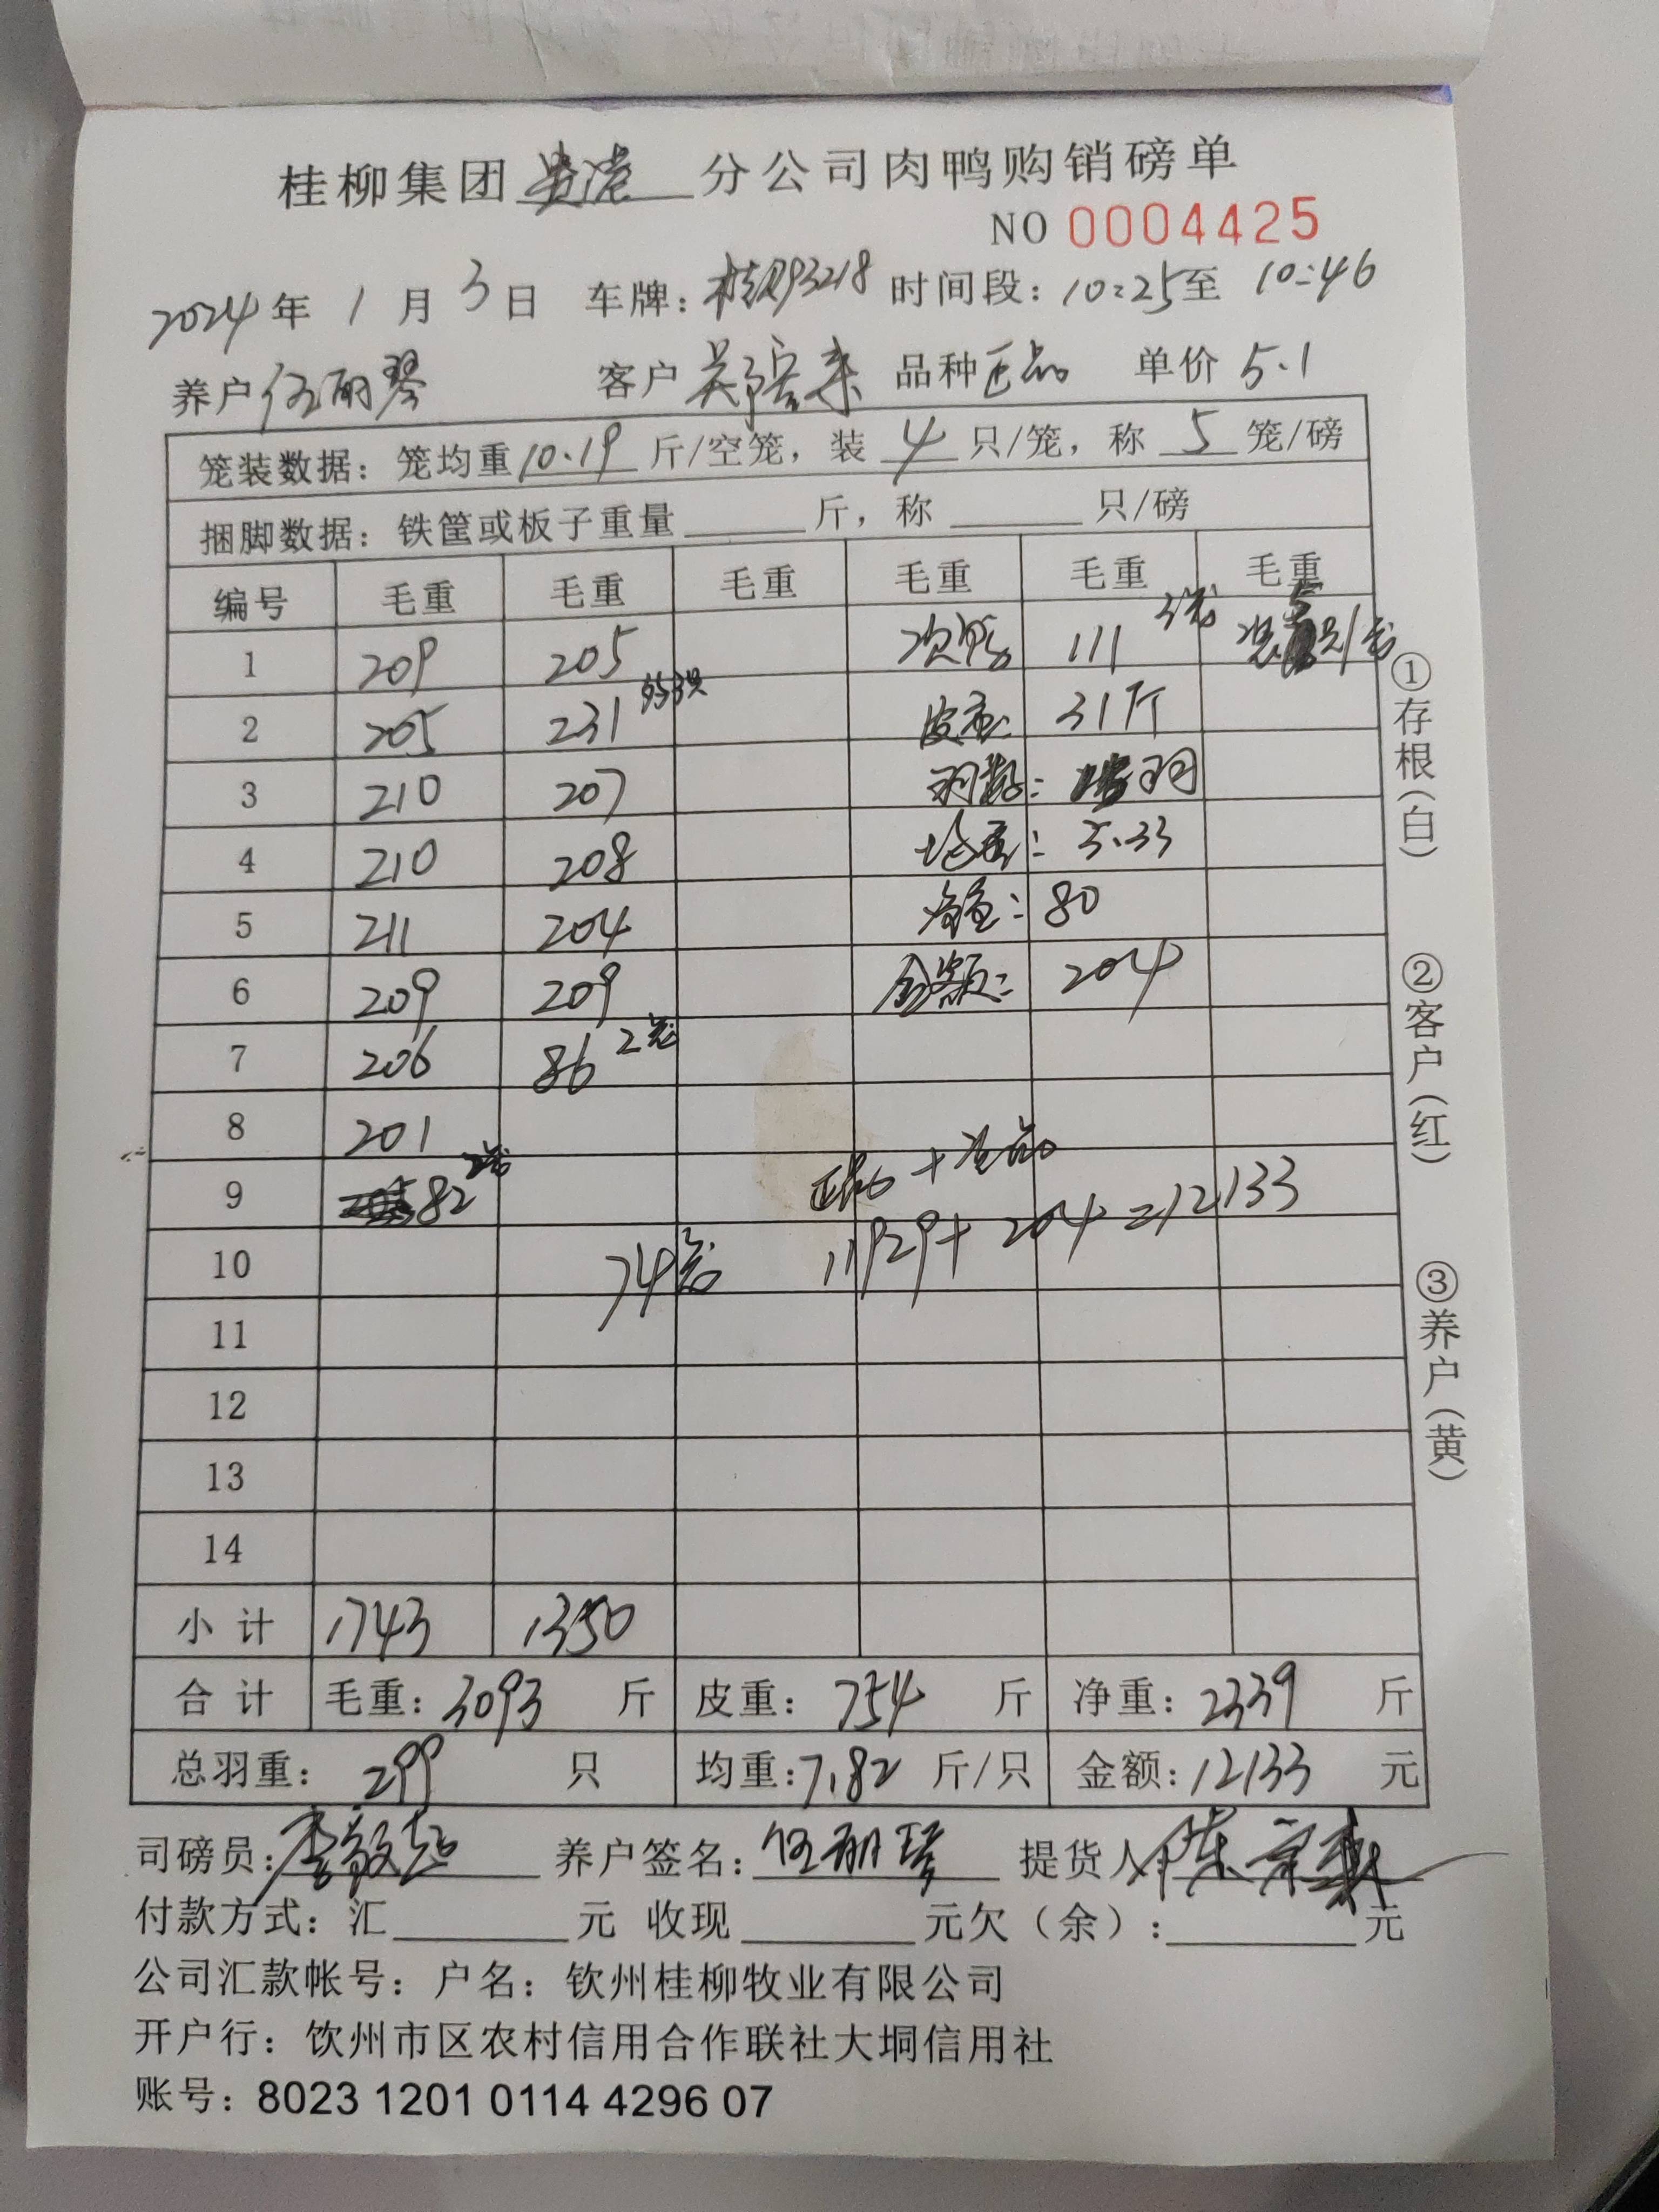 桂柳集团贵港分公司肉鸭购销磅单
NO 0004425
2024年 1 月 3 日 车牌：桂R93218 时间段：10:25至 10:46
养户 伍丽琴 客户 品种 正品 单价 5.1
笼装数据：笼均重10.19斤/空笼，装 4 只/笼，称 5 笼/磅
捆脚数据：铁筐或板子重量 斤，称 只/磅
编号 毛重 毛重 毛重 毛重 毛重 毛重
1 209 205 次鸭 111 3笼 装5只/笼
2 205 231 皮重： 31斤
3 210 207 羽数： 羽
4 210 208 均重： 5.33
5 211 204 净重： 80
6 209 209 金额： 204
7 206 86 2笼
8 201
9 82 2笼 正品+次品
10 74笼 11929+204=12133
11
12
13
14
小计 1743 1350
合计 毛重：3093 斤 皮重：754 斤 净重：2339 斤
总羽重： 299 只 均重：7.82 斤/只 金额：12133 元
司磅员：李敏超 养户签名：伍丽琴 提货人
付款方式：汇 元 收现 元欠（余）： 元
公司汇款帐号：户名：钦州桂柳牧业有限公司
开户行：饮州市区农村信用合作联社大垌信用社
账号：8023 1201 0114 4296 07
①存根（白）
②客户（红）
③养户（黄）